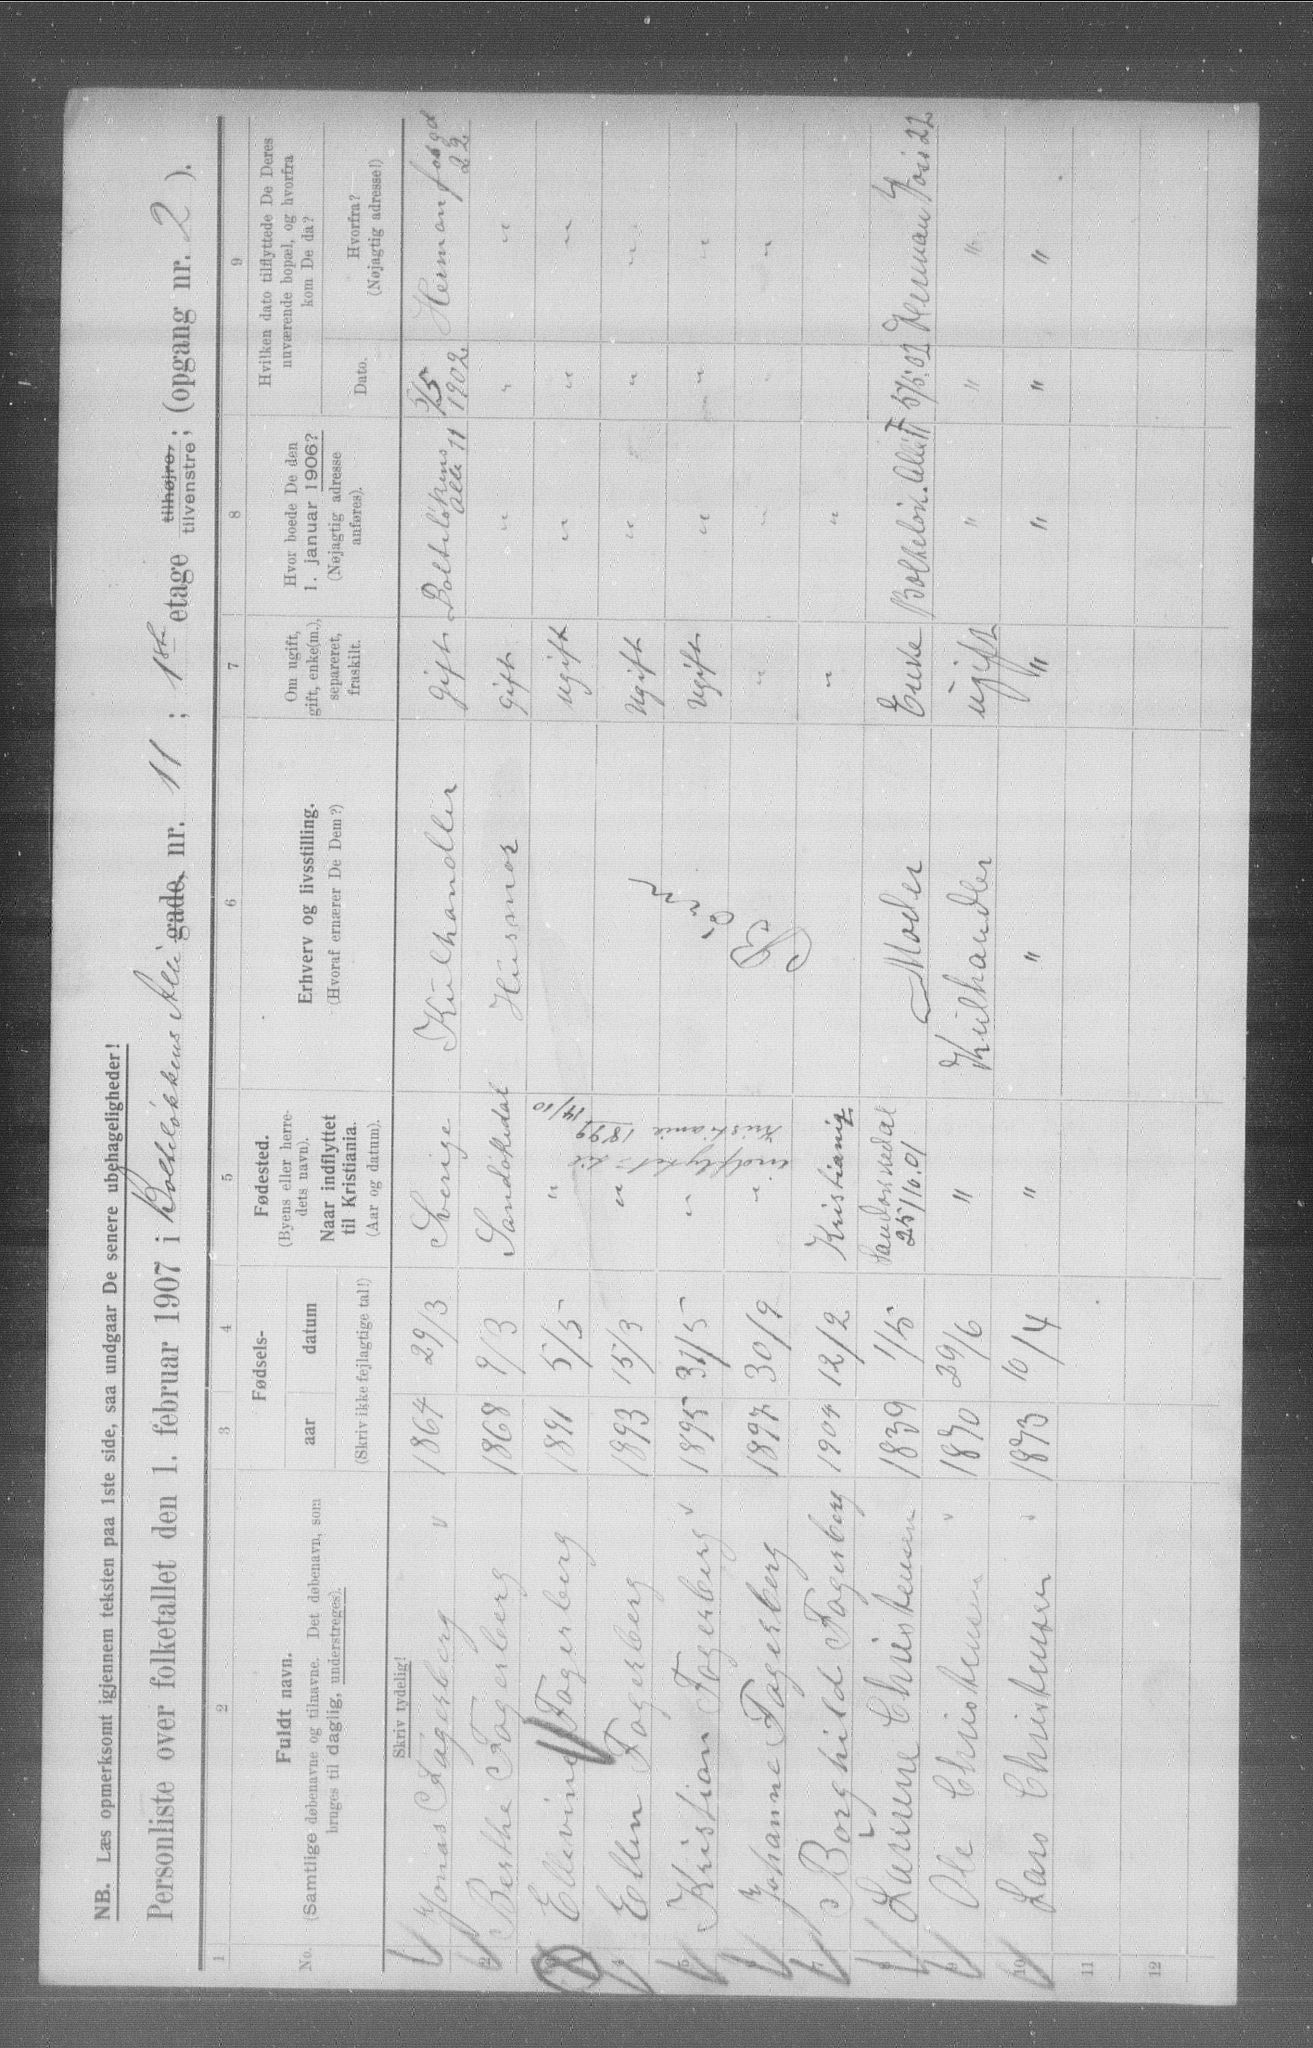 NB. Læs opmerksomt igjennem teksten paa 1ste side, saa undgaar De senere ubehageligheder!
Personliste over folketallet den 1. februar 1907 i Bolteløkkens Alle gade, nr. 11 ; 1ste etage tilhøjre, tilvenstre ; (opgang nr. 2 ).
1 2 3 4 5 6 7 8 9
No.
Fuldt navn.
(Samtlige døbenavne og tilnavne. Det døbenavn, som
bruges til daglig, understreges).
Fødsels-
aar datum
(Skriv ikke fejlagtige tal!)
Fødested.
(Byens eller herre-
dets navn).
Naar indflyttet
til Kristiania.
(Aar og datum).
Erhverv og livsstilling.
(Hvoraf ernærer De Dem?)
Om ugift,
gift, enke(m.),
separeret,
fraskilt.
Hvor boede De den
1. januar 1906?
(Nøjagtig adresse
anføres).
Hvilken dato tilflyttede De Deres
nuværende bopæl, og hvorfra
kom De da?
Dato.
Hvorfra?
(Nøjagtig adresse!)
Skriv tydelig!
Jonas Fagerberg 1864 29/3 Sverige Kulhandler gift Bolteløkens alle 11 5/5 1902 23
2 Berthe Fagerberg 1868 9/3 Sandøkedal Husmor gift " " "
Fagerberg 1891 5/5 " ugift " " "
4 Ellen Fagerberg 1893 15/3 " ugift " " "
5 Kristian Fagerberg 1895 31/5 " ugift " " "
indflyttet til Kristiania 1899 14/10
Johanne Fagerberg 1897 30/9 " " " "
7 Borghild Fagerberg 1904 12/2 Kristiania " "
Børn
8 Christensen 1839 1/5 25/10.01 Moder Enke 5/5.02 22
9 Ole Christensen 1870 29/6 " Kulhandler ugift " " "
10 Lars Christensen 1873 10/4 " " " " " "
11
12